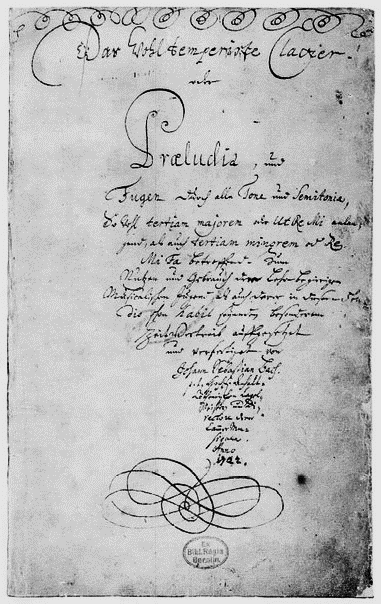 Das Wohltemperirte Clavier.
oder
Præludia, und
Fugen durch alle Tone und Semitonia,
So wohl tertiam majorem oder Ut Re Mi anlan-
gend, als auch tertiam minorem oder Re
Mi Fa betreffend. Zum
Nutzen und Gebrauch der Lehrbegierigen
Musicalischen Jugend, als auch derer in diesem stu-
dio schon habil seyenden besonderem
Zeitvertreib auffgesetzet
und verfertiget von
Johann Sebastian Bach.
p. t: Hochfürstl. Anhalt-
Cöthenischen Capel-
Meistern und Di-
rectore derer
Camer Mu-
siquen.
Anno
1722.
Ex
Bibl. Regia
Berolin.